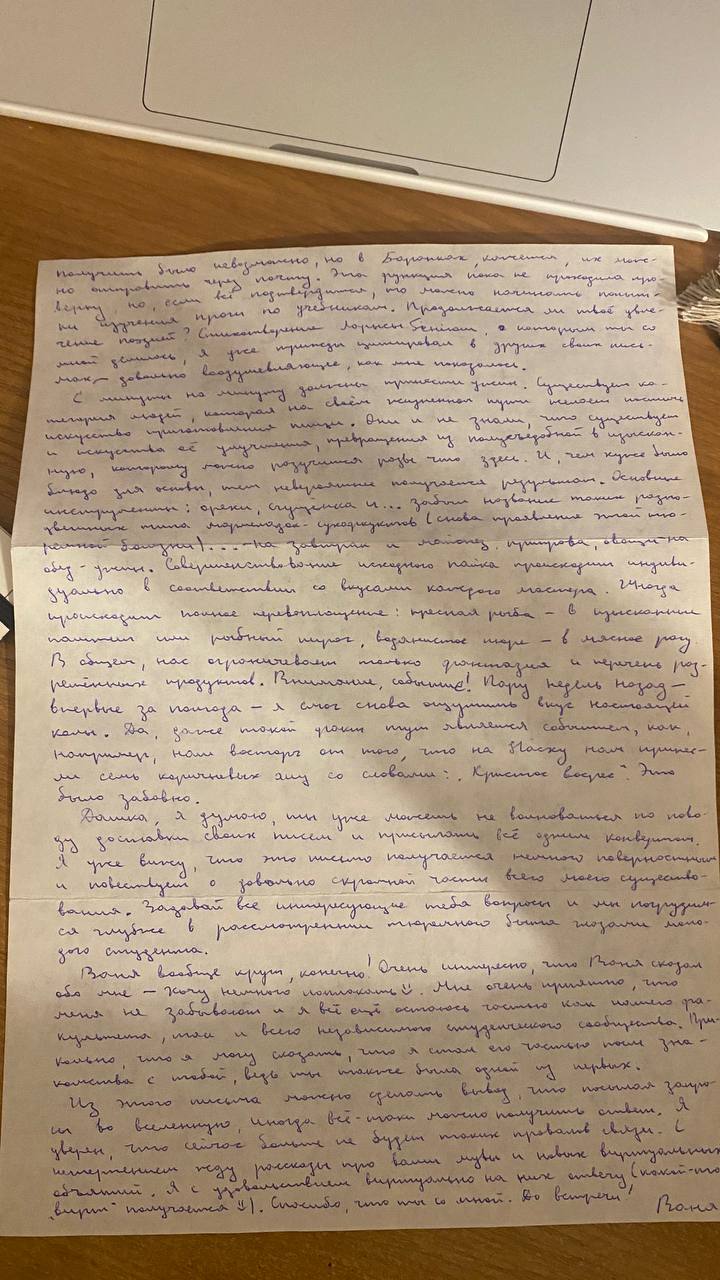 получить было невозможно, но в Баранках, кажется, их мож-
но отправить через почту. Эта функция пока не проходила про-
верку, но, если всё подтвердится, то можно начинать попыт-
ки изучения проги по учебникам. Продолжается ли твоё увле-
чение поэзией? Стихотворение Ларисы, о котором ты со
мной делилась, я уже трижды цитировал в других своих пись-
мах – довольно воодушевляющее, как мне показалось.
С минуты на минуту должны принести ужин. Существует ка-
тегория людей, которая на своём жизненном пути желает постичь
искусство приготовления пищи. Они и не знали, что существует
и искусство её улучшения, превращения из полусъедобной в изыскан-
ную, которому можно разучиться разве что здесь. И, чем хуже было
блюдо для основы, тем невероятнее получается результат. Основные
инструменты: орехи, сгущенка и... забыл название таких разно-
цветных типа мармеладок-сухофруктов (снова проявление этой тю-
ремной болезни)... – на завтрак и майонез, приправа, овощи – на
обед-ужин. Совершенствование исходного пайка происходит индиви-
дуально в соответствии со вкусами каждого мастера. Иногда
происходит полное перевоплощение: пресная рыба – в изысканный
паштет или рыбный пирог, водянистое пюре – в мясное рагу.
В общем, нас ограничивает только фантазия и перечень раз-
решённых продуктов. Внимание, событие! Пару недель назад –
впервые за полгода – я смог снова ощутить вкус настоящей
колы. Да, даже такой факт тут является событием, как,
например, наш восторг от того, что на Пасху нам принес-
ли семь коричневых яиц со словами: „Христос воскрес". Это
было забавно.
Дашка, я думаю, ты уже можешь не волноваться по пово-
ду доставки своих писем и присылать всё одним конвертом.
Я уже вижу, что это письмо получается немного поверхностным
и повествует о довольно скромной части всего моего существо-
вания. Задавай все интересующие тебя вопросы и мы погрузим-
ся глубже в рассмотрении тюремного быта глазами моло-
дого студента.
Ваня вообще крут, конечно! Очень интересно, что Ваня сказал
обо мне – хочу немного поплакать :). Мне очень приятно, что
меня не забывают и я всё ещё остаюсь частью как нашего фа-
культета, так и всего независимого студенческого сообщества. При-
кольно, что я могу сказать, что я стал его частью после зна-
комства с тобой, ведь ты также была одной из первых.
Из этого письма можно сделать вывод, что посылая запро-
сы во вселенную, иногда всё-таки можно получить ответ. Я
уверен, что сейчас больше не будет таких провалов связи. С
нетерпением жду рассказы про ваши мувы и новых виртуальных
объятий. Я с удовольствием виртуально на них отвечу (какой-то
„вирт" получается :)). Спасибо, что ты со мной. До встречи!
Ваня